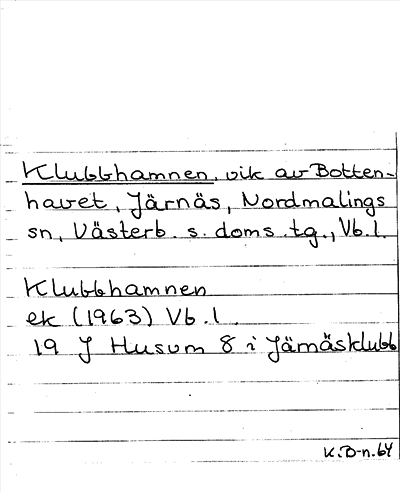 Klubbhamnen, vik av Botten-
havet, Järnäs, Nordmalings
sn, Västerb. s. doms. tg., Vb. l.
Klubbhamnen
ek (1963) Vb. l.
19 J Husum 8 i Järnäsklubb
K. B-n. 64